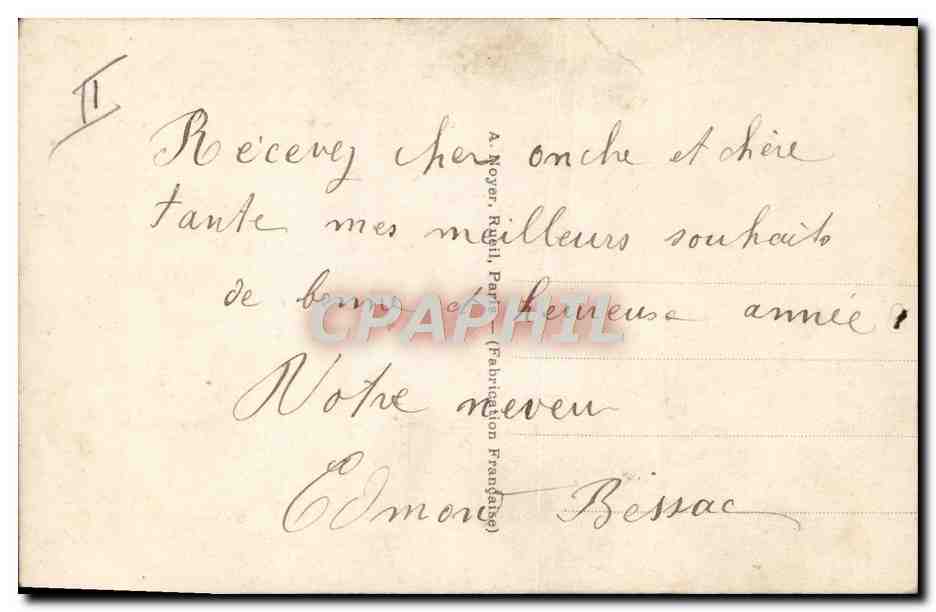 II
Récevez cher oncle et chère
tante mes meilleurs souhaits
de bonne et heureuse année
Notre neveu
Edmond Bessac
A. Noyer, Rueil, Paris — (Fabrication Française)
CPAPHIL